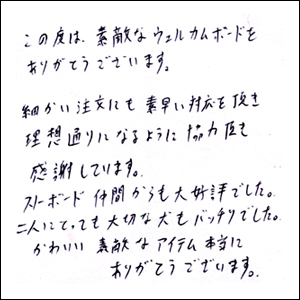 この度は、素敵なウェルカムボードを
ありがとうございます。
細かい注文にも素早い対応を頂き
理想通りになるように協力頂き
感謝しています。
スノーボード仲間からも大好評でした。
二人にとっても大切な犬もバッチリでした。
かわいい素敵なアイテム本当に
ありがとうございます。